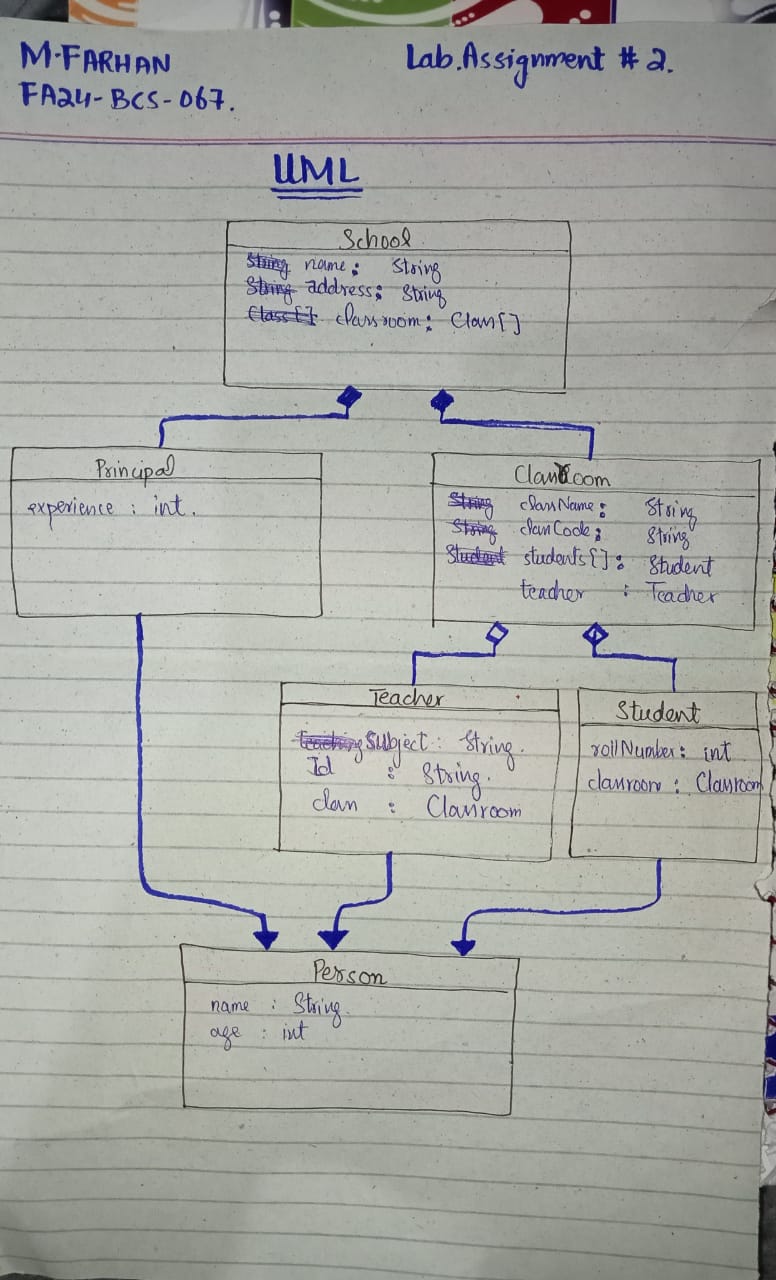 M.FARHAN
Lab.Assignment # 2.
FA24-BCS-067.
UML
School
String name : String
String address : String
Class[] classroom : Class[]
Principal
experience : int.
ClassRoom
String className : String
String classCode : String
Student students[] : Student
teacher : Teacher
Teacher
teaching Subject : String.
Id : String.
class : Classroom
Student
rollNumber : int
classroom : Classroom
Person
name : String.
age : int